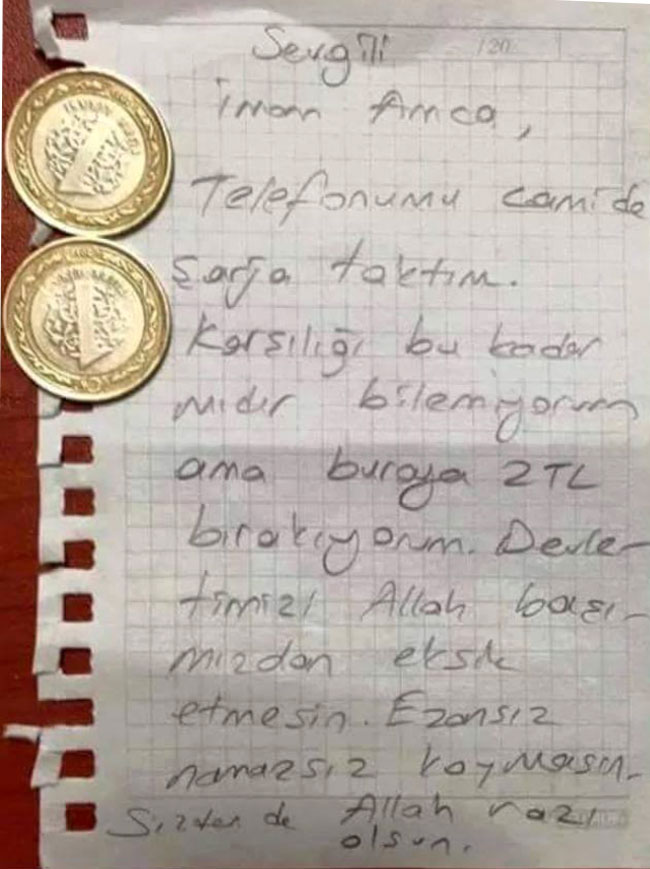 Sevgili
/20
İmam Amca,
Telefonumu camide
şarja taktım.
Karşılığı bu kadar
mıdır bilemiyorum
ama buraya 2TL
bırakıyorum. Devle-
timizi Allah başı-
mızdan eksik
etmesin. Ezansız
namazsız koymasın.
Sizden de Allah razı
olsun.